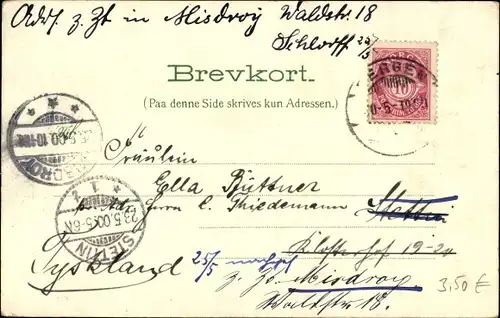 Adr. z. Zt in Misdroy Waldstr. 18
Schlorff 25/5
Brevkort.
(Paa denne Side skrives kun Adressen.)
BERGEN
10
MISDROY
25.5.00.10-11
Fräulein
Ella Büttner
pr. Adr. Herrn C. Thiedemann
STETTIN
23.5.00.5-6N
Stettin
Klosterhof 19-20
Tyskland 25/5 nachges.
z. Zt. Misdroy.
Waldstr. 18.
3,50 €